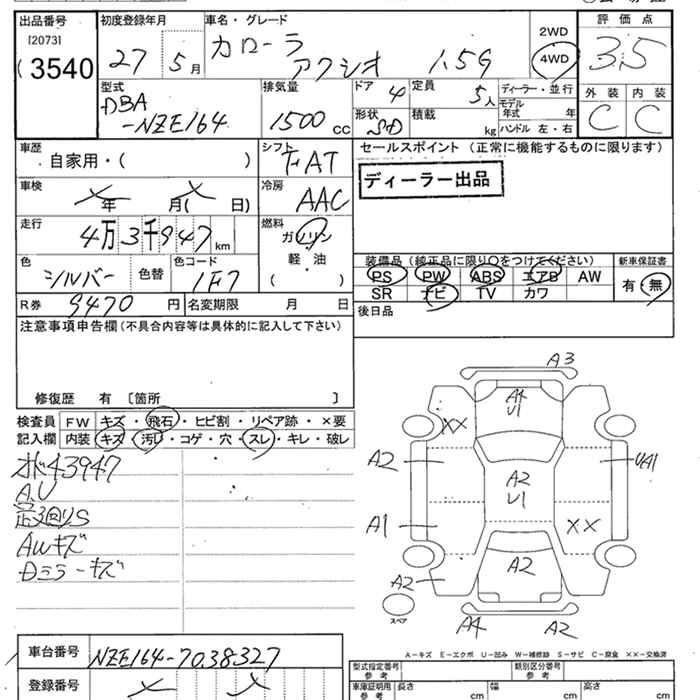 出品番号 初度登録年月 車名・グレード 2WD 評価点
[2073] 27 5月 カローラ 4WD 3.5
3540 アクシオ 1.5G 外装 内装
型式 排気量 ドア 4 定員 5人 ディーラー・並行 C C
DBA モデル年式 年
-NZE164 1500cc 形状 SD 積載 kg ハンドル 左・右
車歴 シフト セールスポイント(正常に機能するものに限ります)
自家用・( ) FAT
ディーラー出品
車検 年 月( 日) 冷房 AAC
走行 4万3千947km 燃料
ガソリン
軽・油
( )
装備品(純正品に限り〇をつけてください) 新車保証書
色 シルバー 色替 色コード 1F7
PS PW ABS エアB AW 有・無
SR ナビ TV カワ
R券 9470円 名変期限 月 日 後日品
注意事項申告欄(不具合内容等は具体的に記入して下さい)
修復歴 有 [箇所 ]
検査員 FW キズ・飛石・ヒビ割・リペア跡・×要
記入欄 内装 キズ・汚れ・コゲ・穴・スレ・キレ・破レ
オド43947
A.U
AWキズ
Dミラーキズ
A3
A4
U1
XX
A2
A2
U1
UA1
A1
XX
A2
A2
スペア
A4
A2
A-キズ E-エクボ U-凹み W-補修跡 S-サビ C-腐食 ××-交換済
車台番号 NZE164-7038327
型式指定番号 参考 類別区分番号 参考
登録番号
車庫証明用 参考 長さ cm 幅 cm 高さ cm